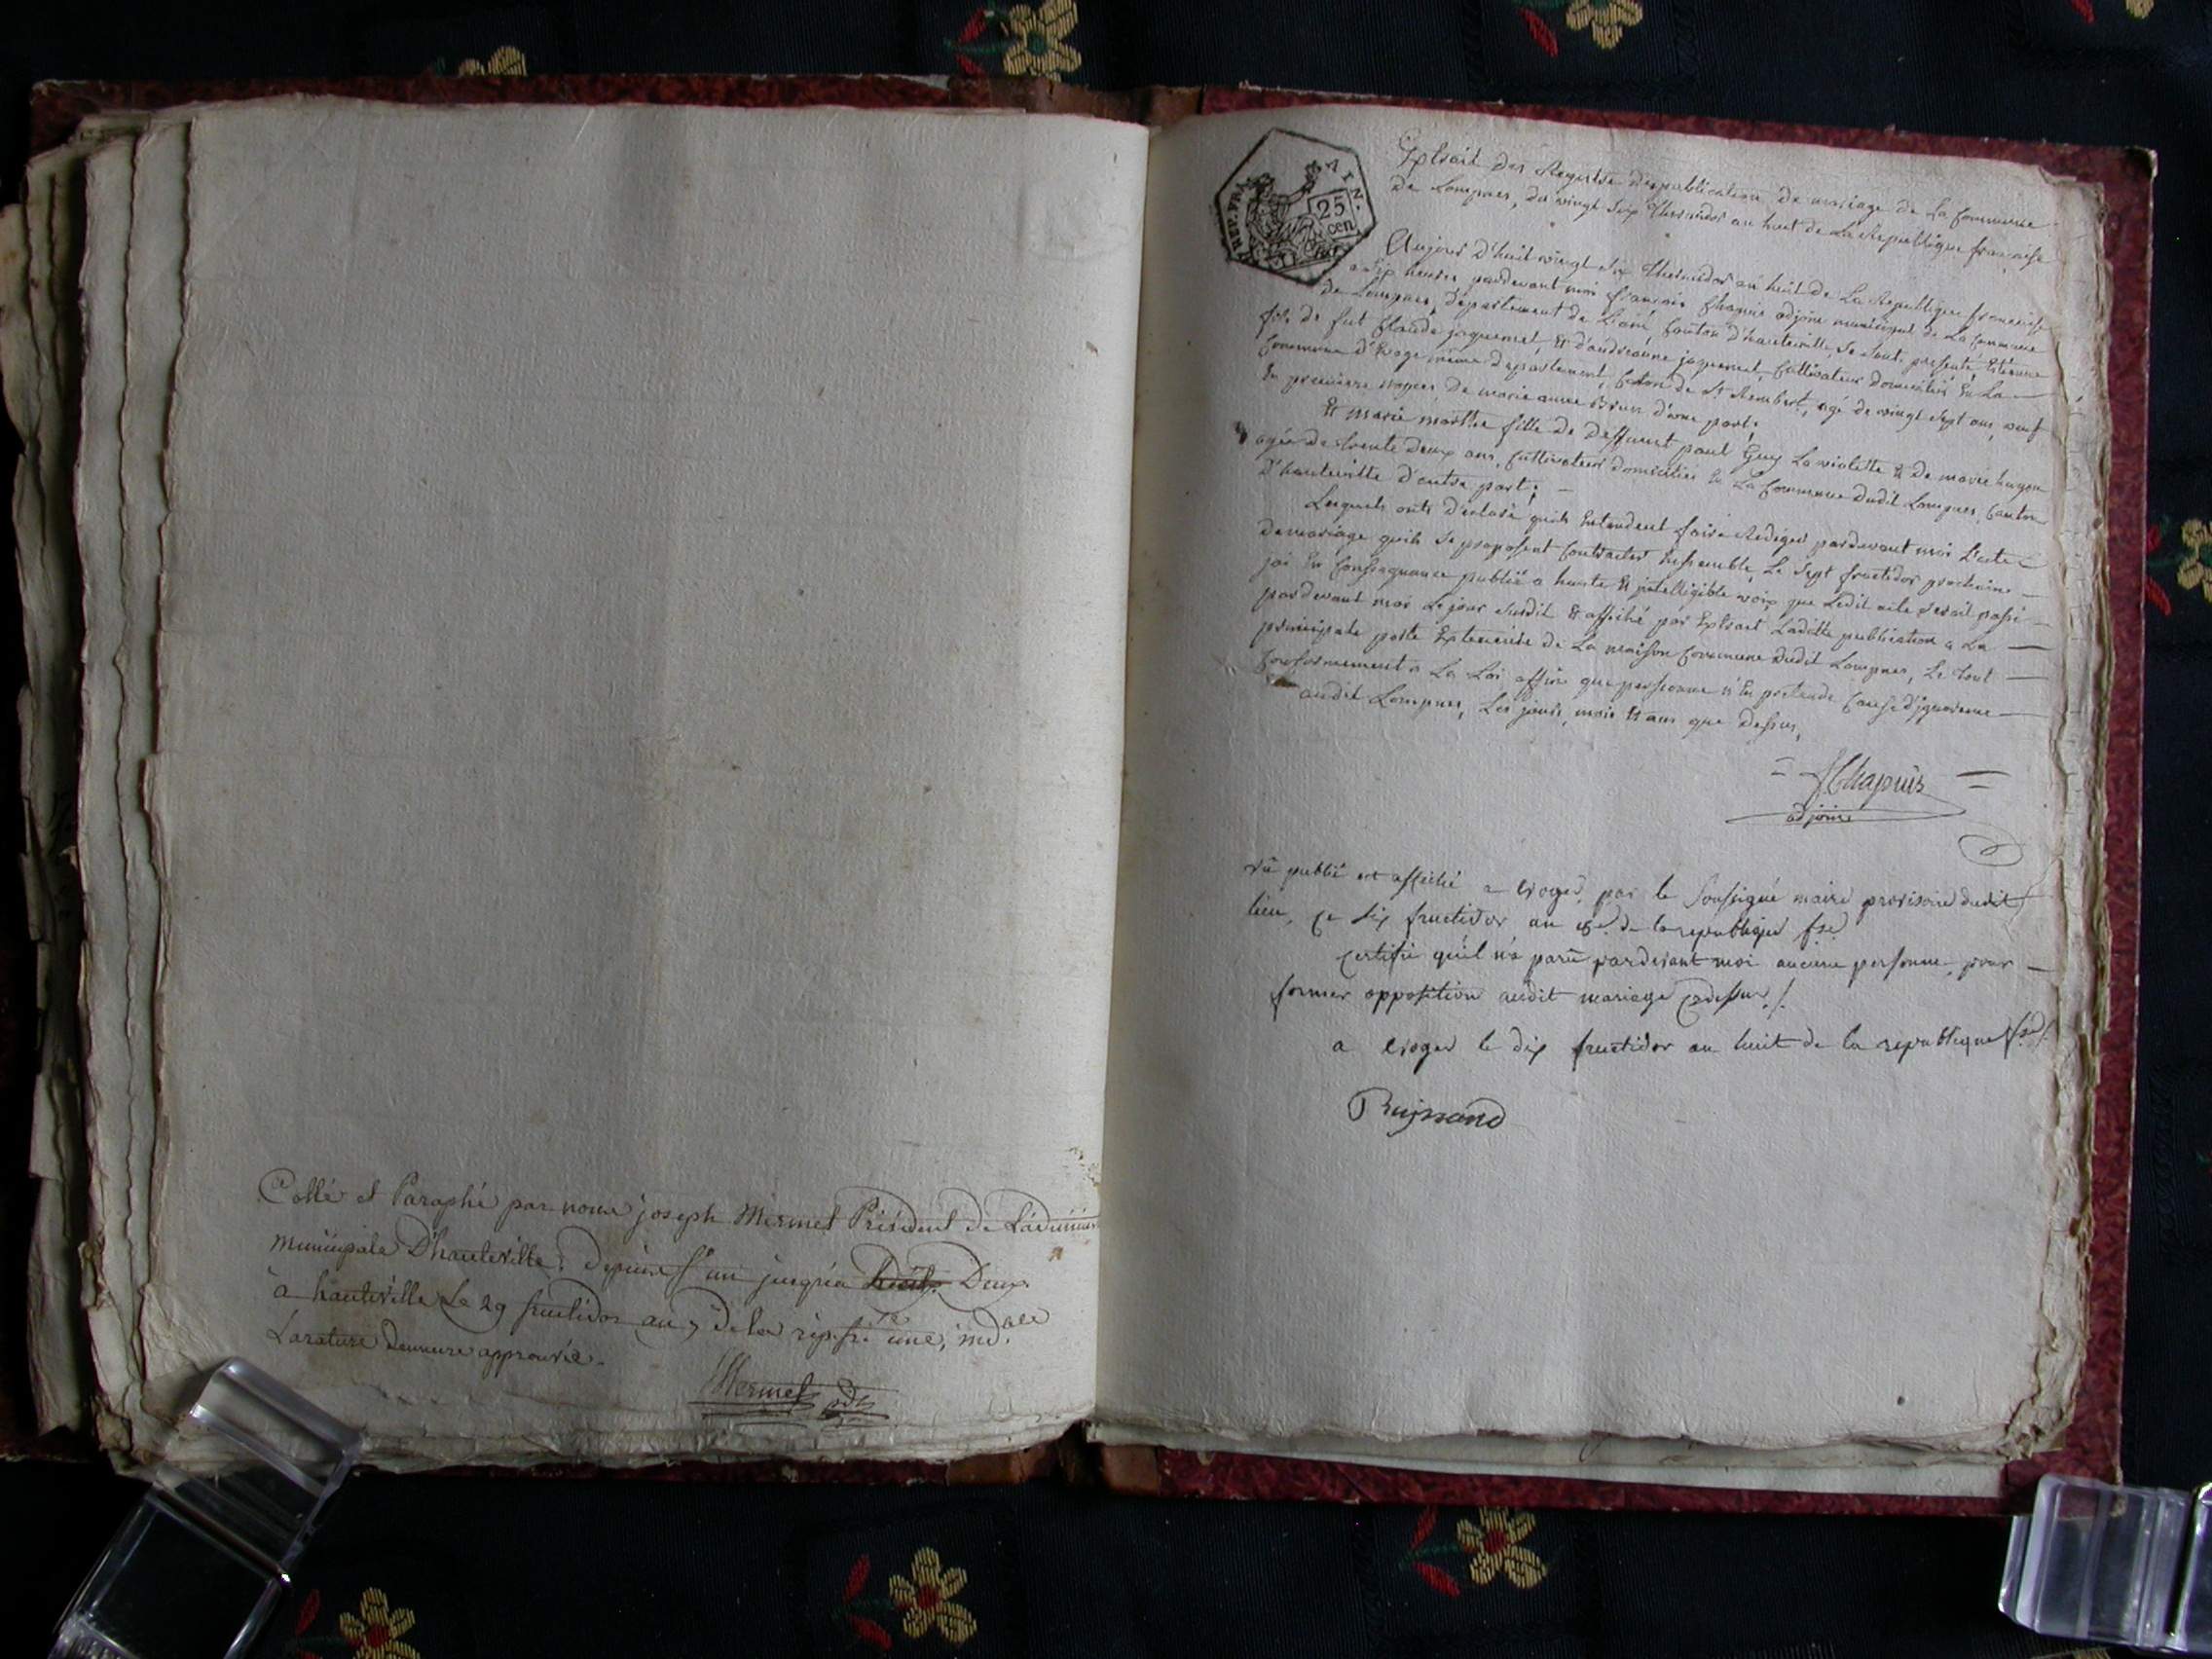 Cotté et Paraphé par nous joseph Mermet Président de L'admin
municipale D'hauteville. Depuis f. un jusqu'a Deux
à hauteville Le 29 fructidor an 7 de la rep. fr. une, ind.ble
La rature demeure approuvée.
Mermet pdt
REP. FRA
AIN.
25
cen
Extrait des Registre de publication de mariage de la Commune
de Lompnes, du vingt Six thermidor an huit de La Republique francaise
Aujour d'huit vingt Six thermidor an huit de La Republique francaise
a Six heures pardevant moi francois Chapuis adjoint municipal de La Commune
de Lompnes, département de L'ain, Canton d'hauteville, Se Sont présenté, Etienne
fils de fut Claude jaquemet, Et d'andréanne jaquemet, Cultivateur domicilié En La
Commune d'Evoge même departement, Canton de St. Rembert, agé de vingt Sept ans, veuf
En premiere nopces de marie anne Brun d'une part;
Et marie marthe fille de deffunct paul Guy La violette & de marie hugon
agée de trente deux ans, Cultivateur domiciliée En La Commune dudit Lompnes, Canton
d'hauteville d'autre part; —
Lesquels onts déclaré quils Entendent faire Rediger pardevant moi L'acte
de mariage quils Se proposent Contracter Enssemble, Le Sept fructidor prochain —
jai En Consequance publié a haute & jntelligible voix que Ledit acte Serait passé —
pardevant moi Le jour Susdit & affiché par Extrait Laditte publication a La —
principale porte Exterieure de La maison Commune dudit Lompnes, Le tout —
Conformement a La Loi affin que personne n'En prétende Cause d'jgnorence —
audit Lompnes, Les jours, mois & ans que dessus,
= f Chapuis =
adjoint
vû publié et affiché a Evoges, par le Soussigné maire provisoire dudit
lieu, ce dix fructidor an 8e. de la republique fse
Certifie qu'il n'a parû pardevant moi aucune personne pour —
former opposition audit mariage Cydessus /.
a Evoges le dix fructidor an huit de la republique fse /.